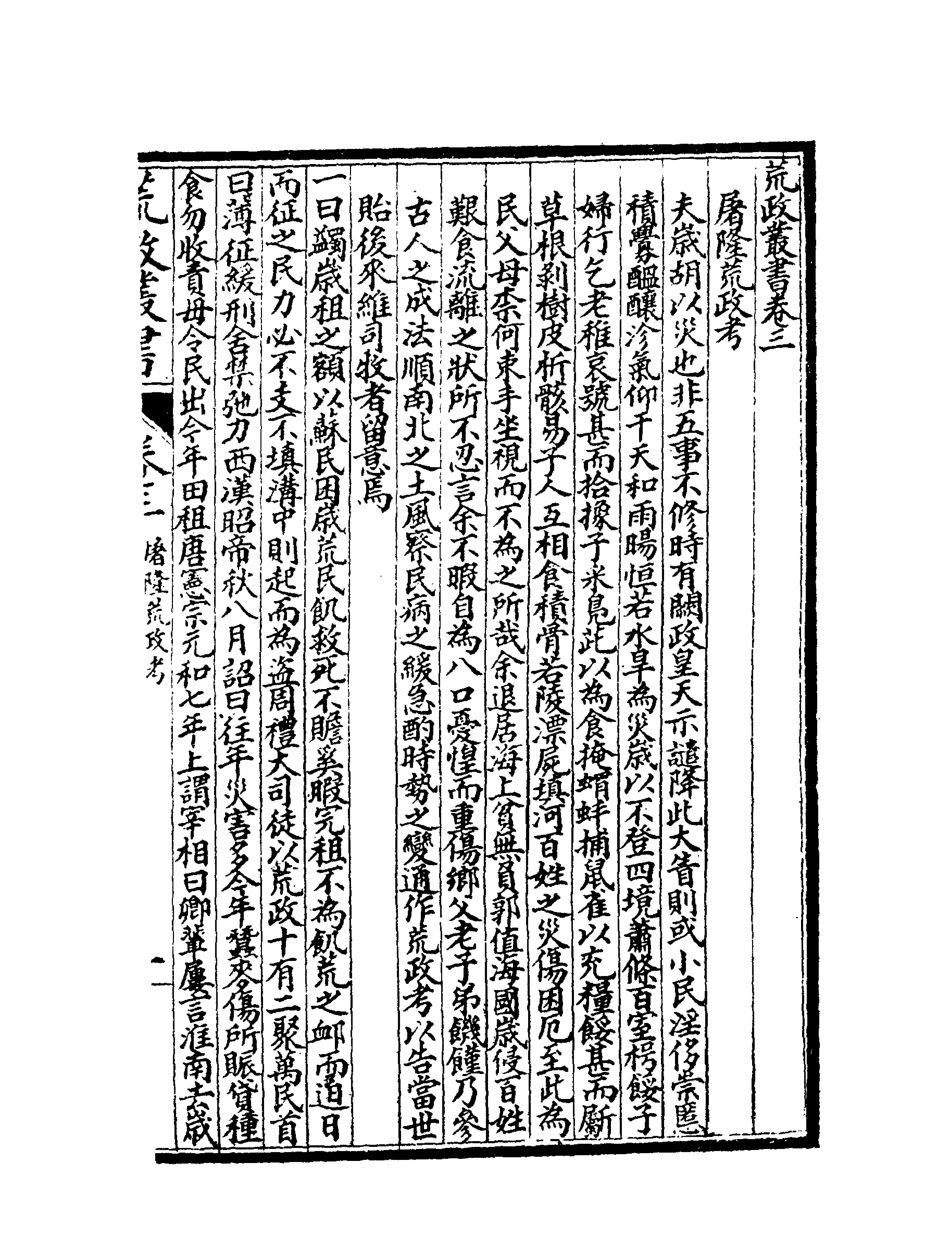 荒政叢書卷三
屠隆荒政考
夫歳胡以災也非五事不修時有闕政皇天示譴降此大眚則或小民淫侈崇慝
積釁醞釀沴氣仰干天和雨暘恒若水旱為災歳以不登四境蕭條百室枵餒子
婦行乞老稚哀號甚而拾橡子采鳬茈以為食掩蝟蚌捕鼠雀以充糧餒甚而斸
草根剥樹皮析骸易子人互相食積骨若陵漂屍填河百姓之災傷困厄至此為
民父母柰何束手坐視而不為之所哉余退居海上貧無負郭值海國歳侵百姓
艱食流離之狀所不忍言余不暇自為八口憂惶而重傷鄉父老子弟饑饉乃參
古人之成法順南北之土風察民病之緩急酌時勢之變通作荒政考以告當世
貽後來維司牧者留意焉
一曰蠲歳租之額以蘇民困歳荒民飢救死不贍奚暇完租不為飢荒之䘏而逌日
而征之民力必不支不填溝中則起而為盗周禮大司徒以荒政十有二聚萬民首
曰薄征緩刑舍禁弛力西漢昭帝秋八月詔曰往年災害多今年蠶麥傷所賑貸種
食勿收責毋令民出今年田租唐憲宗元和七年上謂宰相曰卿輩屢言淮南去歳
荒政叢書 卷三 屠隆荒政考 一